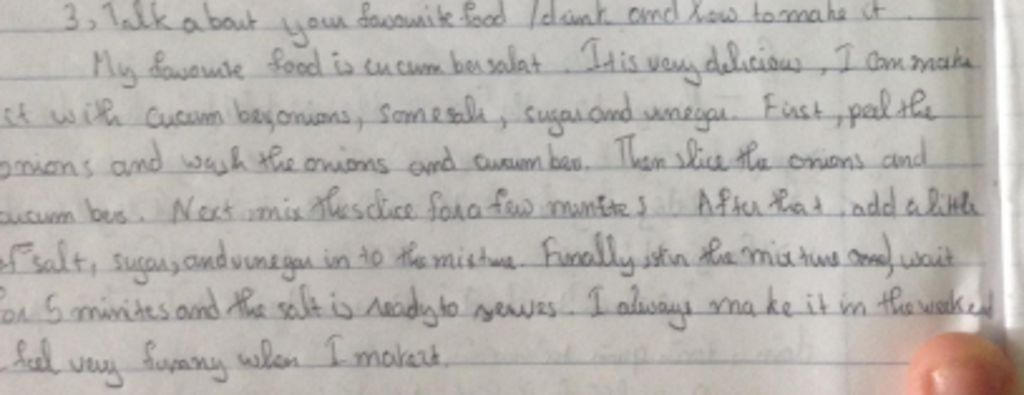 3, Talk about your favourite food / drink and how to make it.
My favourite food is cucumber salat. It is very delicious, I can make
it with cucumber, onions, some salt, sugar and vinegar. First, peel the
onions and wash the onions and cucumber. Then slice the onions and
cucumber. Next, mix the slice for a few munites. After that, add a little
of salt, sugar, and vinegar in to the mixture. Finally, stir the mixture and wait
for 5 minites and the salt is ready to serves. I always make it in the weeked
feel very funny when I make it.